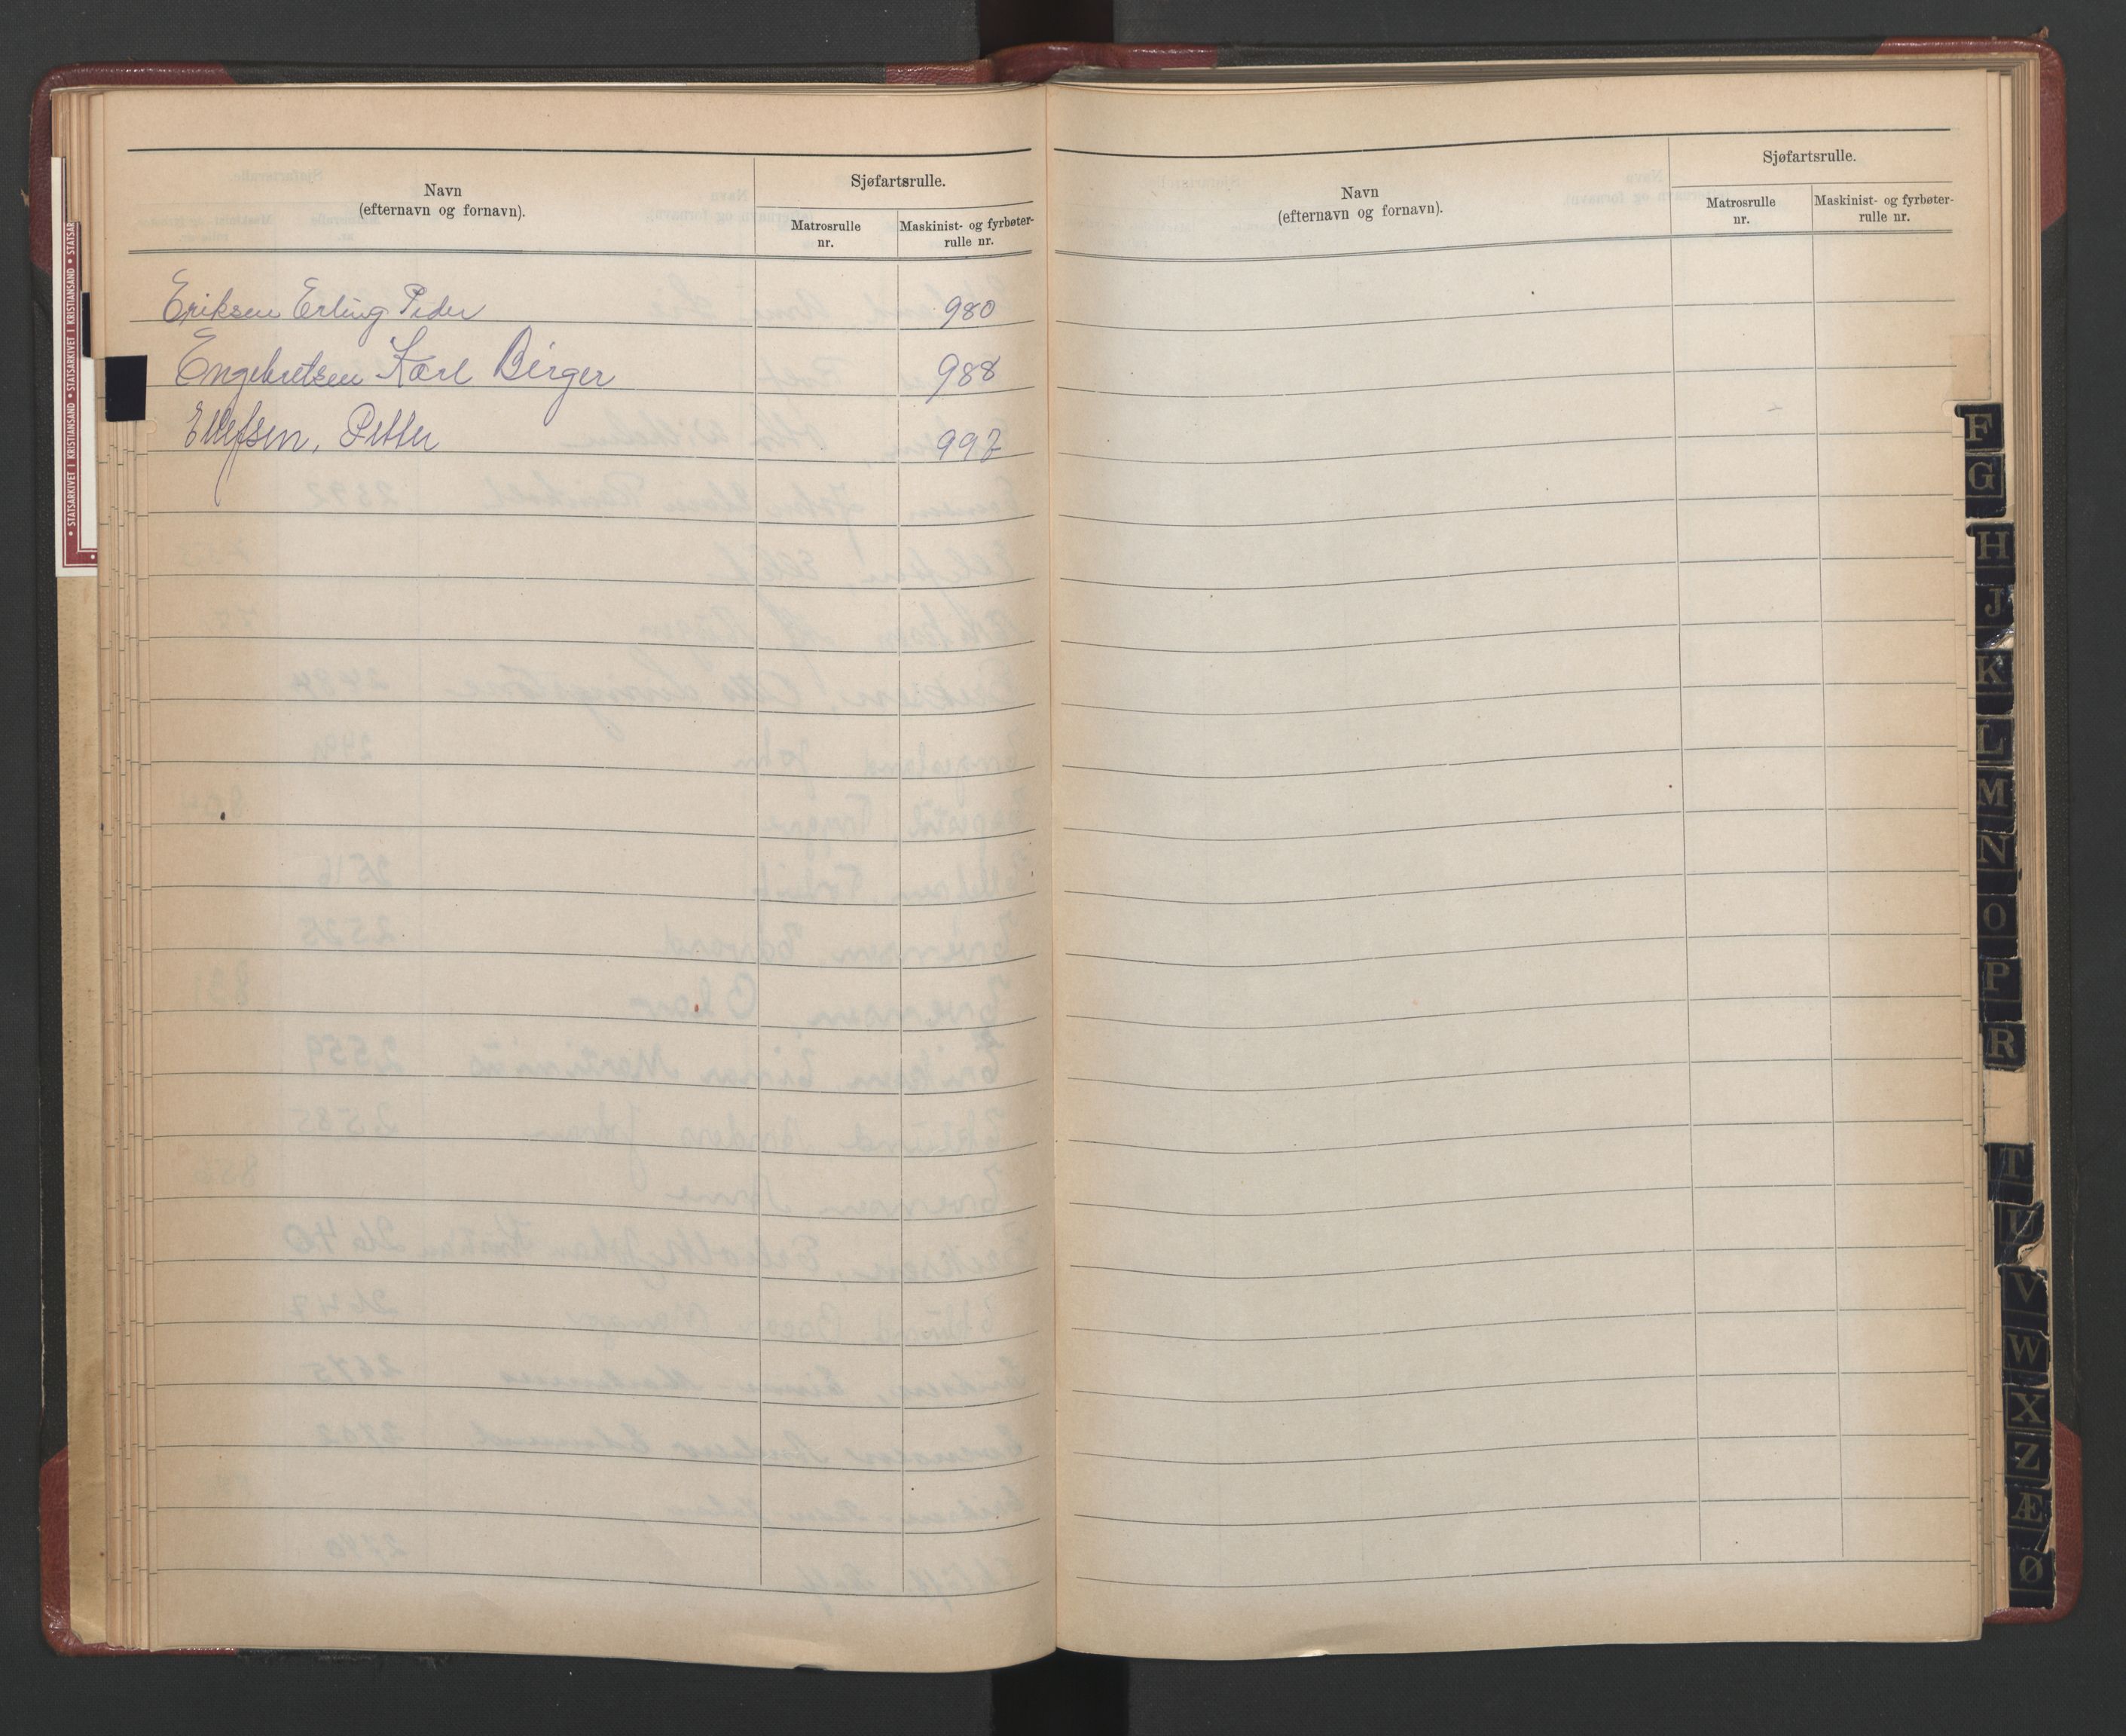 STATSARKIVET I KRISTIANSAND • STATSARKIVET I KRISTIANSAND • STATSAR
Navn
(efternavn og fornavn).
Sjøfartsrulle.
Matrosrulle
nr.
Maskinist- og fyrbøter-
rulle nr.
Eriksen Erling Peder 980
Engebretsen Karl Birger 988
Ellefsen, Petter 992
Navn
(efternavn og fornavn).
Sjøfartsrulle.
Matrosrulle
nr.
Maskinist- og fyrbøter-
rulle nr.
F
G
H
J
K
L
M
N
O
P
R
T
U
V
W
X
Z
Æ
Ø